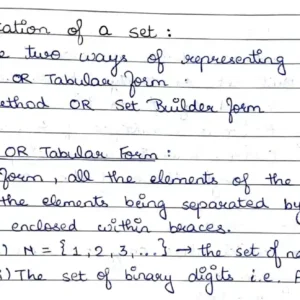 ation of a set :
two ways of representing
OR Tabular form .
ethod OR Set Builder form
OR Tabular Form :
form , all the elements of the
the elements being separated by
enclosed within braces.
) N = {1, 2, 3, ...} → the set of
i) The set of binary digits i.e.